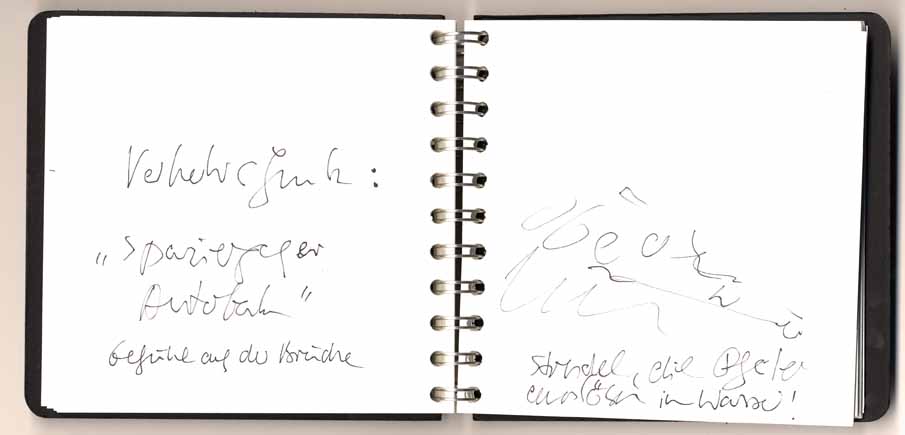 Verkehrsfunk:
„Spaziergänger
Autobahn"
Gefühle auf der Brücke
Strudel, die Pfeiler
auslösen im Wasser!